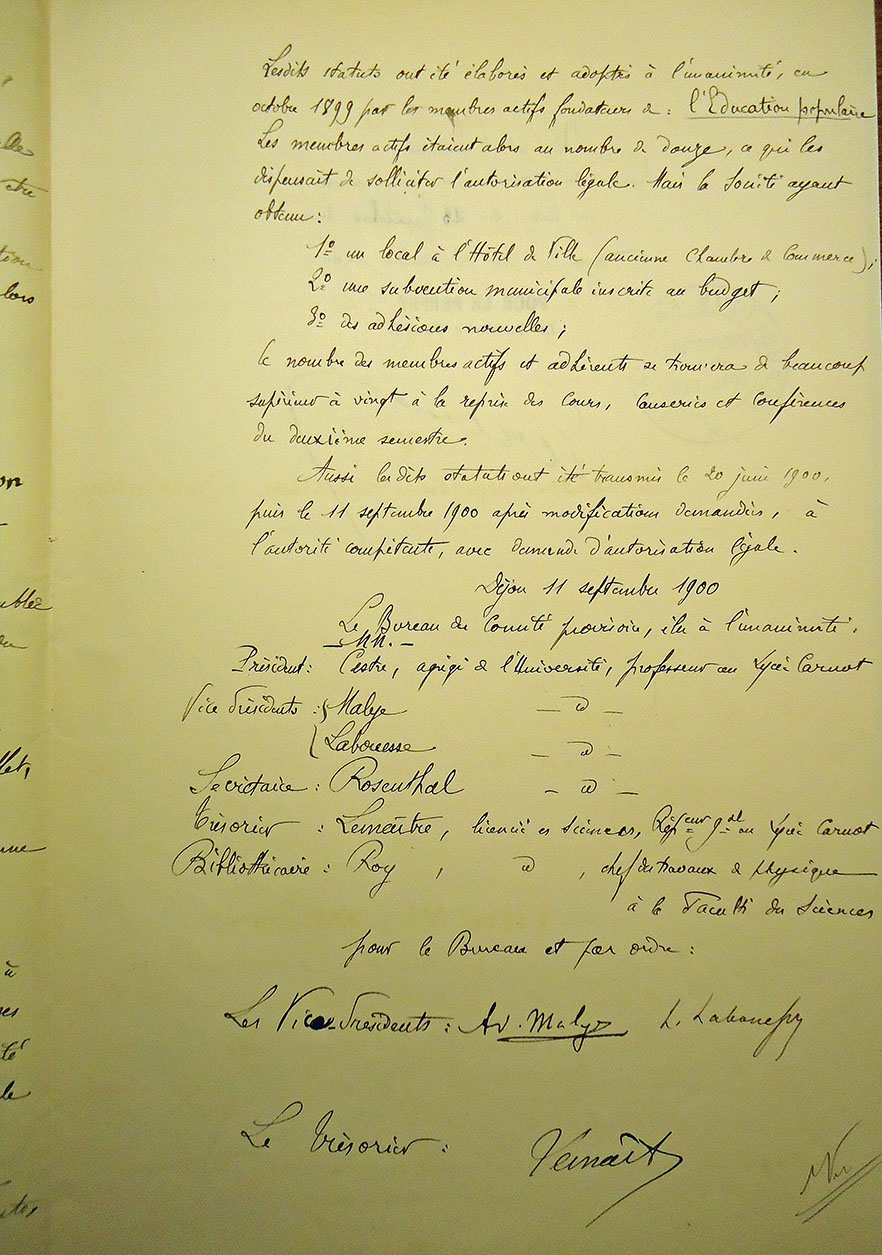 Lesdits statuts ont été élaborés et adoptés à l'unanimité, en
octobre 1899 par les membres actifs fondateurs de : l'Education populaire
Les membres actifs étaient alors au nombre de douze, ce qui les
dispensait de solliciter l'autorisation légale. Mais la Société ayant
obtenu :
1º un local à l'Hôtel de Ville (ancienne Chambre de Commerce) ;
2º une subvention municipale inscrite au budget ;
3º des adhésions nouvelles ;
le nombre des membres actifs et adhérents se trouvera de beaucoup
supérieur à vingt à la reprise des cours, causeries et conférences
du deuxième semestre.
Aussi lesdits statuts ont été transmis le 20 juin 1900,
puis le 11 septembre 1900 après modifications demandées, à
l'autorité compétente, avec demande d'autorisation légale.
Dijon 11 septembre 1900
Le Bureau du Comité provisoire, élu à l'unanimité.
MM.
Président : Cestre, agrégé de l'Université, professeur au Lycée Carnot
Vice Présidents : Malye — id —
Labouesse — id —
Secrétaire : Rosenthal — id —
Trésorier : Lemaître, licencié ès sciences, Répeteur gal au Lycée Carnot
Bibliothécaire : Roy, id, chef des travaux de physique
à la Faculté des Sciences
pour le Bureau et par ordre :
Les Vice-Présidents : Av. Malye L. Labouesse
Le Trésorier : Lemaître